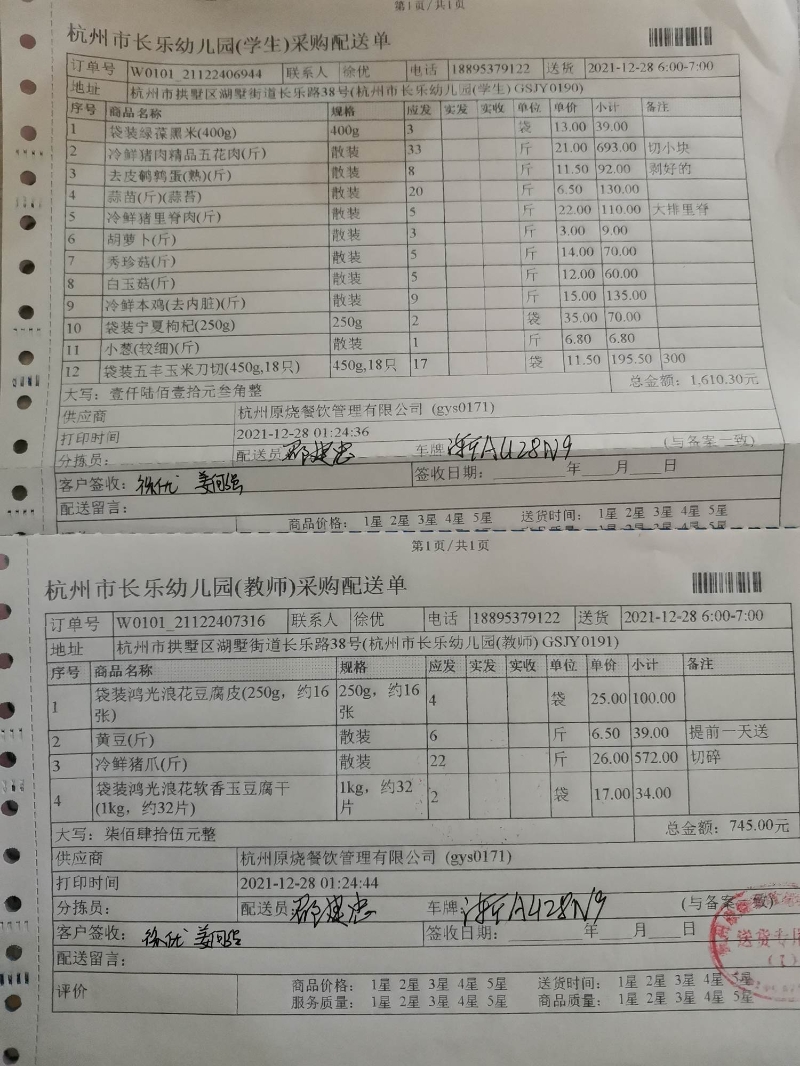 第1页/共1页
杭州市长乐幼儿园(学生)采购配送单
订单号 W0101_21122406944 联系人 徐优 电话 18895379122 送货 2021-12-28 6:00-7:00
地址 杭州市拱墅区湖墅街道长乐路38号(杭州市长乐幼儿园(学生) GSJY0190)
序号 商品名称 规格 应发 实发 实收 单位 单价 小计 备注
1 袋装绿葆黑米(400g) 400g 3 袋 13.00 39.00
2 冷鲜猪肉精品五花肉(斤) 散装 33 斤 21.00 693.00 切小块
3 去皮鹌鹑蛋(熟)(斤) 散装 8 斤 11.50 92.00 剥好的
4 蒜苗(斤)(蒜苔) 散装 20 斤 6.50 130.00
5 冷鲜猪里脊肉(斤) 散装 5 斤 22.00 110.00 大排里脊
6 胡萝卜(斤) 散装 3 斤 3.00 9.00
7 秀珍菇(斤) 散装 5 斤 14.00 70.00
8 白玉菇(斤) 散装 5 斤 12.00 60.00
9 冷鲜本鸡(去内脏)(斤) 散装 9 斤 15.00 135.00
10 袋装宁夏枸杞(250g) 250g 2 袋 35.00 70.00
11 小葱(较细)(斤) 散装 1 斤 6.80 6.80
12 袋装五丰玉米刀切(450g,18只) 450g,18只 17 袋 11.50 195.50 300
大写：壹仟陆佰壹拾元叁角整 总金额：1,610.30元
供应商 杭州原烧餐饮管理有限公司 (gys0171)
打印时间 2021-12-28 01:24:36
分拣员： 配送员 车牌 浙AU28N9 (与备案一致)
客户签收：徐优 签收日期：______年____月____日
配送留言：
商品价格： 1星 2星 3星 4星 5星 送货时间： 1星 2星 3星 4星 5星
第1页/共1页
杭州市长乐幼儿园(教师)采购配送单
订单号 W0101_21122407316 联系人 徐优 电话 18895379122 送货 2021-12-28 6:00-7:00
地址 杭州市拱墅区湖墅街道长乐路38号(杭州市长乐幼儿园(教师) GSJY0191)
序号 商品名称 规格 应发 实发 实收 单位 单价 小计 备注
1 袋装鸿光浪花豆腐皮(250g，约16张) 250g，约16张 4 袋 25.00 100.00
2 黄豆(斤) 散装 6 斤 6.50 39.00 提前一天送
3 冷鲜猪爪(斤) 散装 22 斤 26.00 572.00 切碎
4 袋装鸿光浪花软香玉豆腐干(1kg，约32片) 1kg，约32片 2 袋 17.00 34.00
大写：柒佰肆拾伍元整 总金额：745.00元
供应商 杭州原烧餐饮管理有限公司 (gys0171)
打印时间 2021-12-28 01:24:44
分拣员： 配送员 车牌：浙AU28N9 (与备案一致)
客户签收：徐优 签收日期：______年____月____日
配送留言：
评价 商品价格： 1星 2星 3星 4星 5星 送货时间： 1星 2星 3星 4星 5星
服务质量： 1星 2星 3星 4星 5星 商品质量： 1星 2星 3星 4星 5星
送货专用